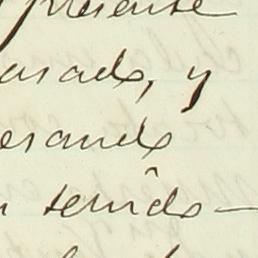 presente
asado, y
esando
tenido —